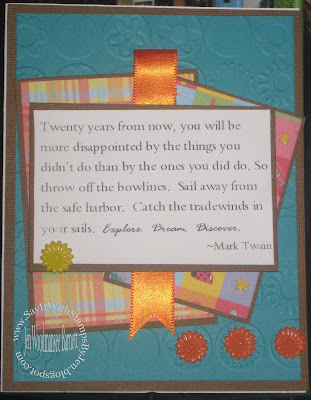 Twenty years from now, you will be
more disappointed by the things you
didn't do than by the ones you did do. So
throw off the bowlines.  Sail away from
the safe harbor.  Catch the tradewinds in
your sails. Explore. Dream. Discover.
~Mark Twain
www.SayItWithStampsByJen.blogspot.com
Jen Woodmansee Barnett